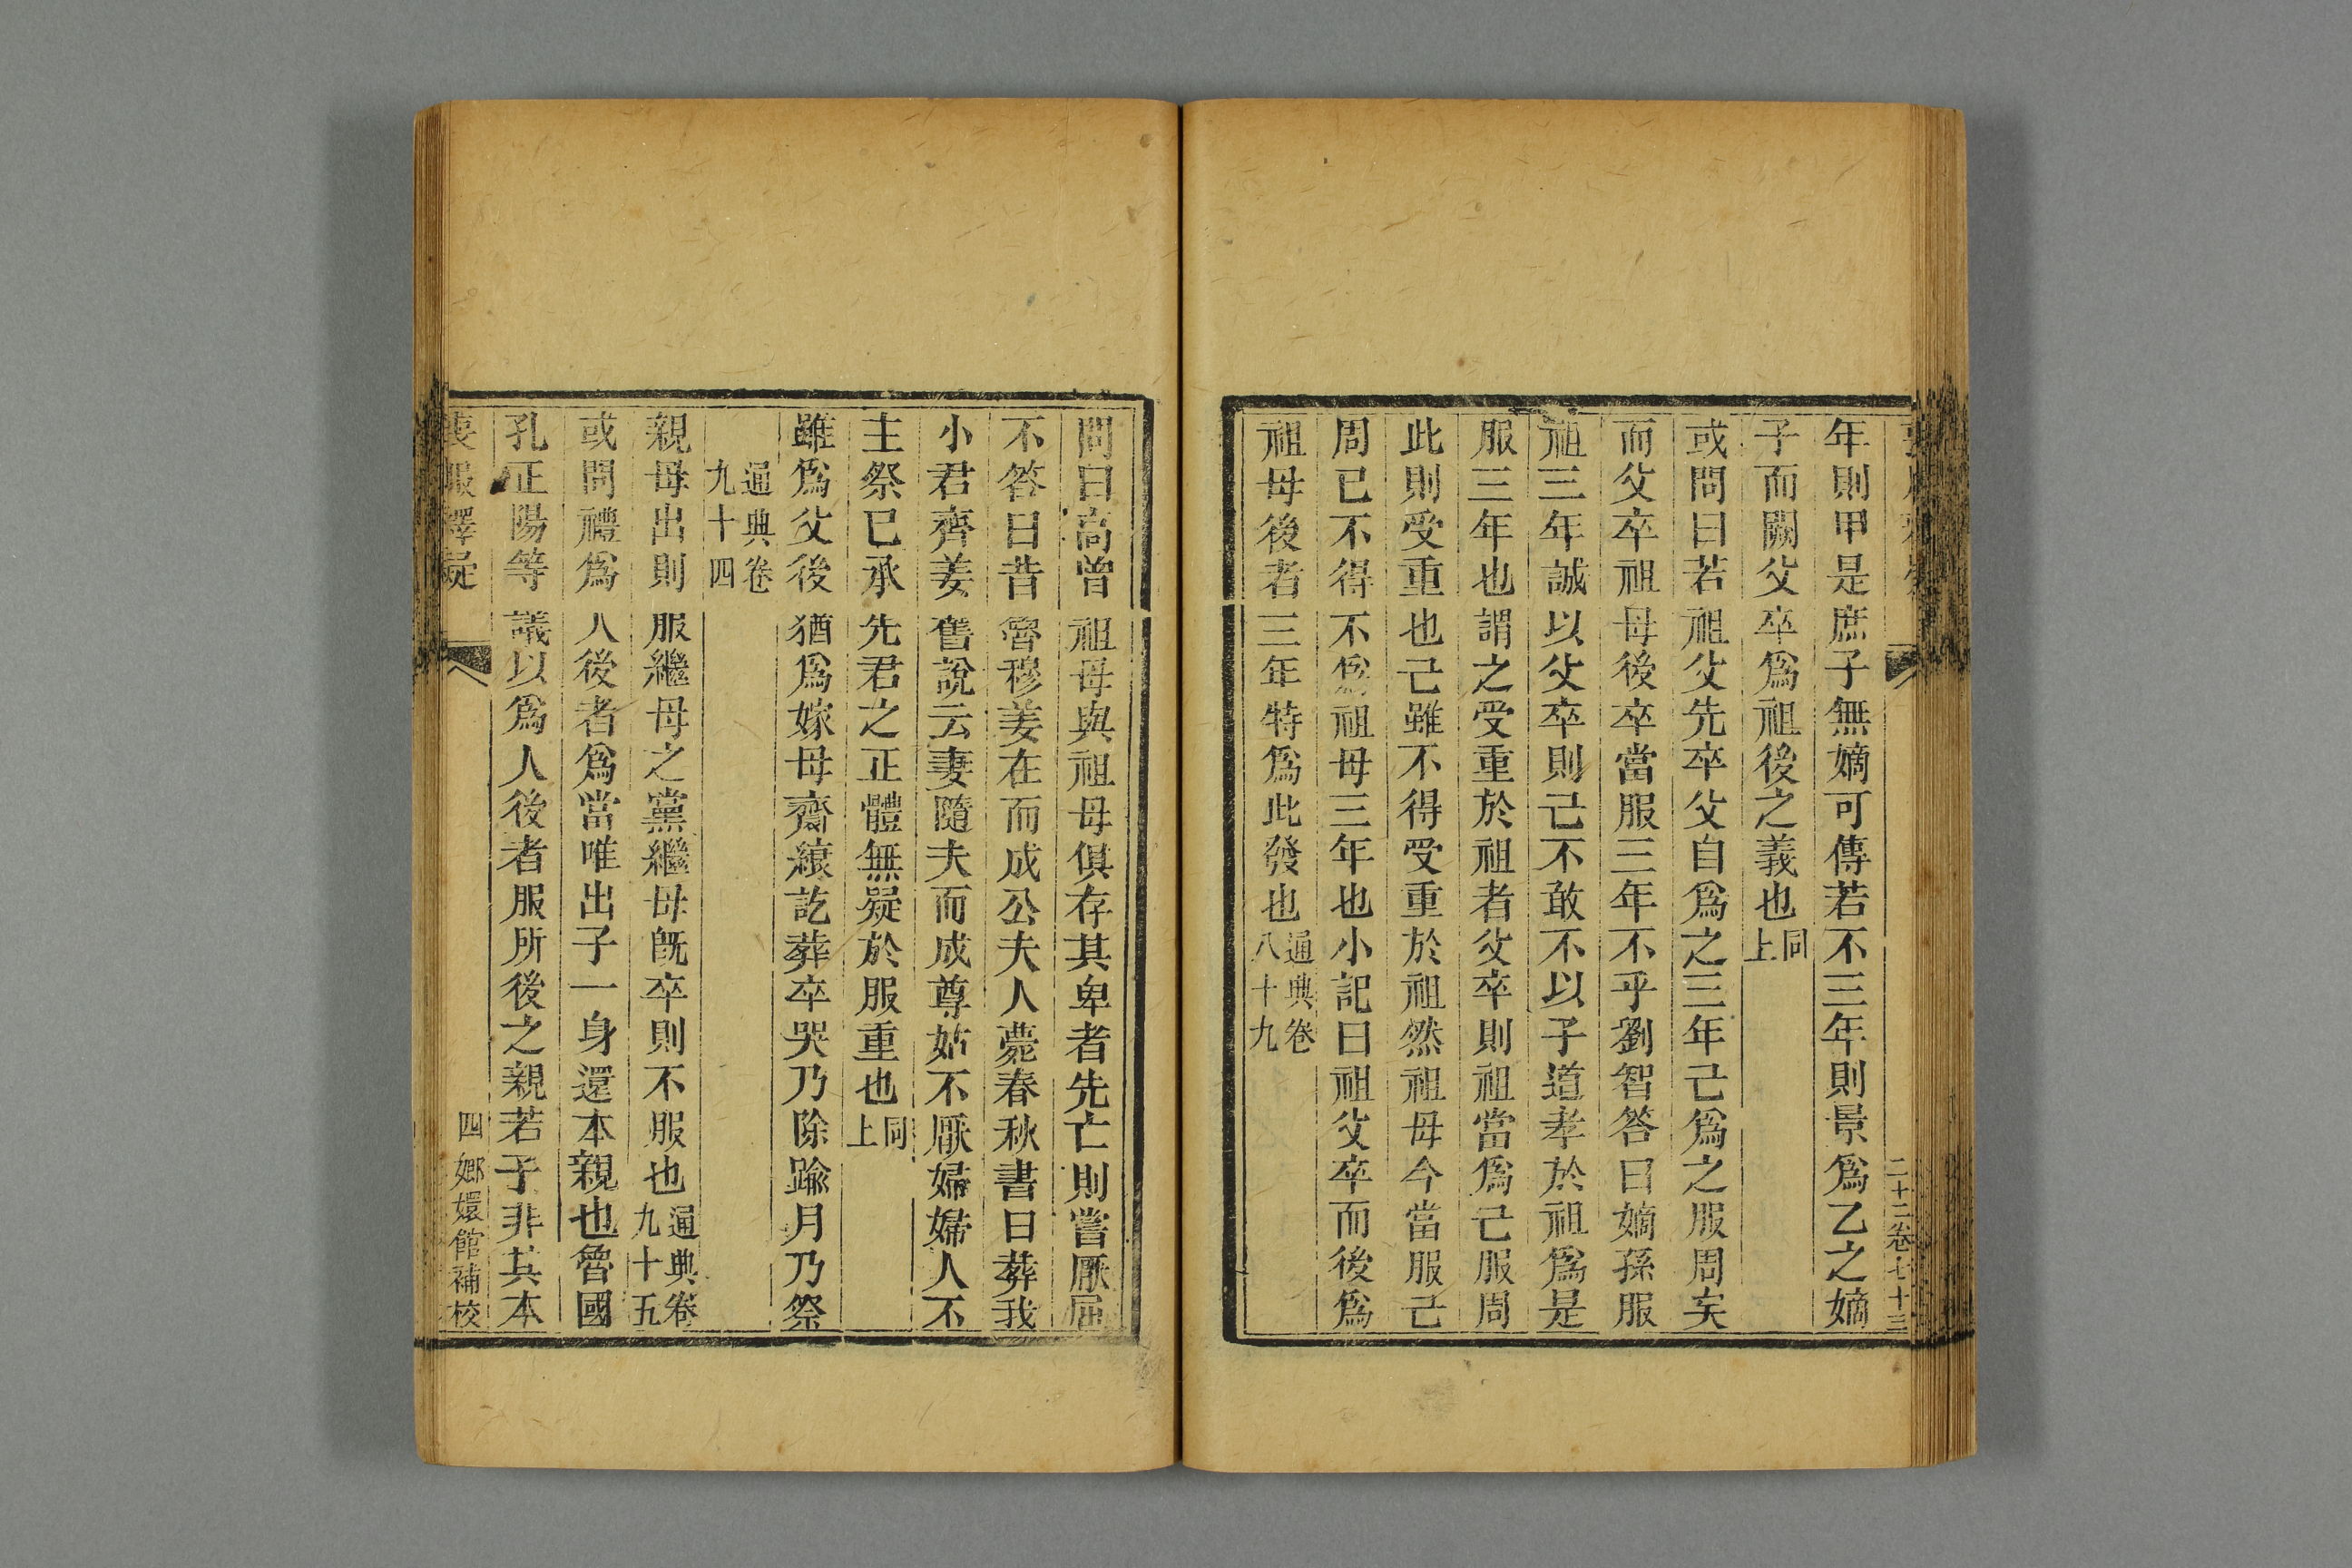 二十二卷七十三
年則甲是庶子無嫡可傳若不三年則景爲乙之嫡
子而闕父卒爲祖後之義也同上
或問曰若祖父先卒父自爲之三年己爲之服周矣
而父卒祖母後卒當服三年不乎劉智答曰嫡孫服
祖三年誠以父卒則己不敢不以子道孝於祖爲是
服三年也謂之受重於祖者父卒則祖當爲己服周
此則受重也己雖不得受重於祖然祖母今當服己
周已不得不爲祖母三年也小記曰祖父卒而後爲
祖母後者三年特爲此發也通典卷八十九
問曰高曾祖母與祖母俱存其卑者先亡則嘗厭屈
不答曰昔魯穆姜在而成公夫人薨春秋書曰葬我
小君齊姜舊說云妻隨夫而成尊姑不厭婦婦人不
主祭已承先君之正體無疑於服重也同上
雖爲父後猶爲嫁母齊縗訖葬卒哭乃除踰月乃祭
通典卷九十四
親母出則服繼母之黨繼母旣卒則不服也通典卷九十五
或問禮爲人後者爲當唯出子一身還本親也魯國
孔正陽等議以爲人後者服所後之親若子非其本
喪服釋疑 四 嫏嬛館補校